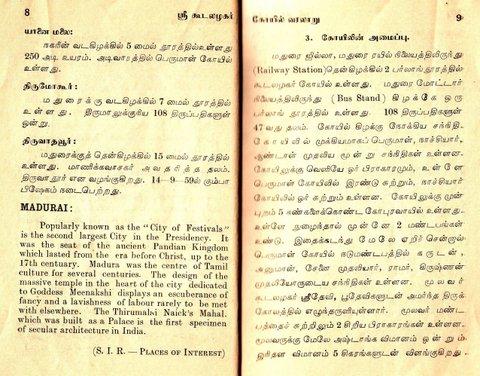 8
ஸ்ரீ கூடலழகர்
யானை மலை:
நகரின் வடகிழக்கில் 5 மைல் தூரத்தில்உள்ளது
250 அடி உயரம். அடிவாரத்தில் பெருமாள் கோயில்
உள்ளது.
திருமோகூர்:
மதுரைக்கு வடகிழக்கில் 7 மைல் தூரத்தில்
உள்ளது. திருமாலுக்குரிய 108 திருப்பதிகளுள்
ஒன்று.
திருவாதவூர்:
மதுரைக்குத் தென்கிழக்கில் 15 மைல் தூரத்தில்
உள்ளது. மாணிக்கவாசகர் அவதரித்த தலம்.
திருவாதூர் என வழங்குகிறது. 14—9—59ல் கும்பா
பிஷேகம் நடைபெற்றது.
MADURAI:
Popularly known as the "City of Festivals"
is the second largest City in the Presidency. It
was the seat of the ancient Pandian Kingdom
which lasted from the era before Christ, up to the
17th centuary. Madura was the centre of Tamil
culture for several centuries. The design of the
massive temple in the heart of the city dedicated
to Goddess Meenakshi displays an excuberance of
fancy and a lavishness of labour rarely to be met
with elsewhere. The Thirumalai Naick's Mahal.
which was built as a Palace is the first specimen
of secular architecture in India.
(S. I. R.— PLACES OF INTEREST)
கோயில் வரலாறு
9
3. கோயிலின் அமைப்பு.
மதுரை ஜில்லா, மதுரை ரயில் நிலையத்திலிருந்து
(Railway Station)தென்கிழக்கில் 2 பர்லாங்குதூரத்தில்
கூடலழகர் கோயில் உள்ளது. மதுரை மோட்டார்
நிலையத்திலிருந்து (Bus Stand) கிழக்கே ஒரு
பர்லாங் தூரத்தில் உள்ளது. 108 திருப்பதிகளுள்
47வது தலம். கோயில் கிழக்கு நோக்கிய சந்நிதி.
கோயிலில் முக்கியமாகப் பெருமாள், நாச்சியார்,
ஆண்டாள் முதலிய மூன்று சந்நிதிகள் உள்ளன.
கோயிலுக்கு வெளியே ஓர் பிராகாரமும், உள்ளே
பெருமாள் கோயிலில் இரண்டு சுற்றும், நாச்சியார்
கோயிலில் ஓர் சுற்றும் உள்ளன. கோயிலுக்கு முன்
புறம் 5 கண்களைக்கொண்ட கோபுரவாயில் உள்ளது.
உள்ளே நுழைந்தால் முன்னே 2 மண்டபங்கள்
உண்டு. இதைக்கடந்து மேலே ஏறிச் சென்றால்
பெருமாள் கோயில் மடுமண்டபத்தில் கருடன்,
அனுமான், சேனை முதலியார், ராமர், கிருஷ்ணன்
முதலியோருடைய சந்நிதிகள் உள்ளன. மூலவர்
கூடலழகர் ஸ்ரீதேவி, பூதேவிகளுடன் அமர்ந்த திருக்
கோலத்தில் எழுந்தருளியுள்ளார். மூலவர் மண்ட
பத்தைச் சுற்றிலும் 2 சிறிய பிராகாரங்கள் உள்ளன.
மூலவருக்குமேலே அஷ்டாங்க விமானம் ஒன்றும்
விமானம் 5 சிகரங்களுடன் விளங்குகிறது.